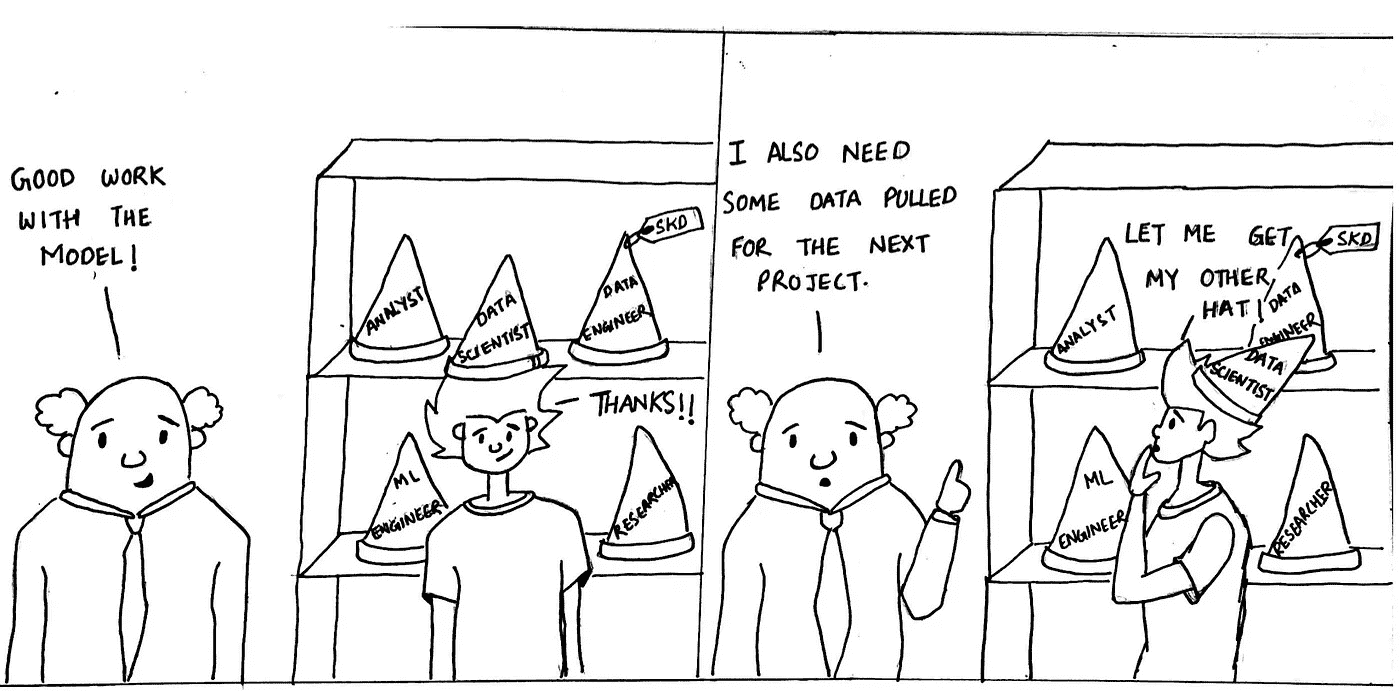 GOOD WORK
WITH THE
MODEL!
ANALYST
DATA
SCIENTIST
DATA
ENGINEER
SKD
THANKS!!
ML
ENGINEER
RESEARCHER
I ALSO NEED
SOME DATA PULLED
FOR THE NEXT
PROJECT.
LET ME GET
MY OTHER
HAT!
ANALYST
DATA
ENGINEER
SKD
DATA
SCIENTIST
ML
ENGINEER
RESEARCHER